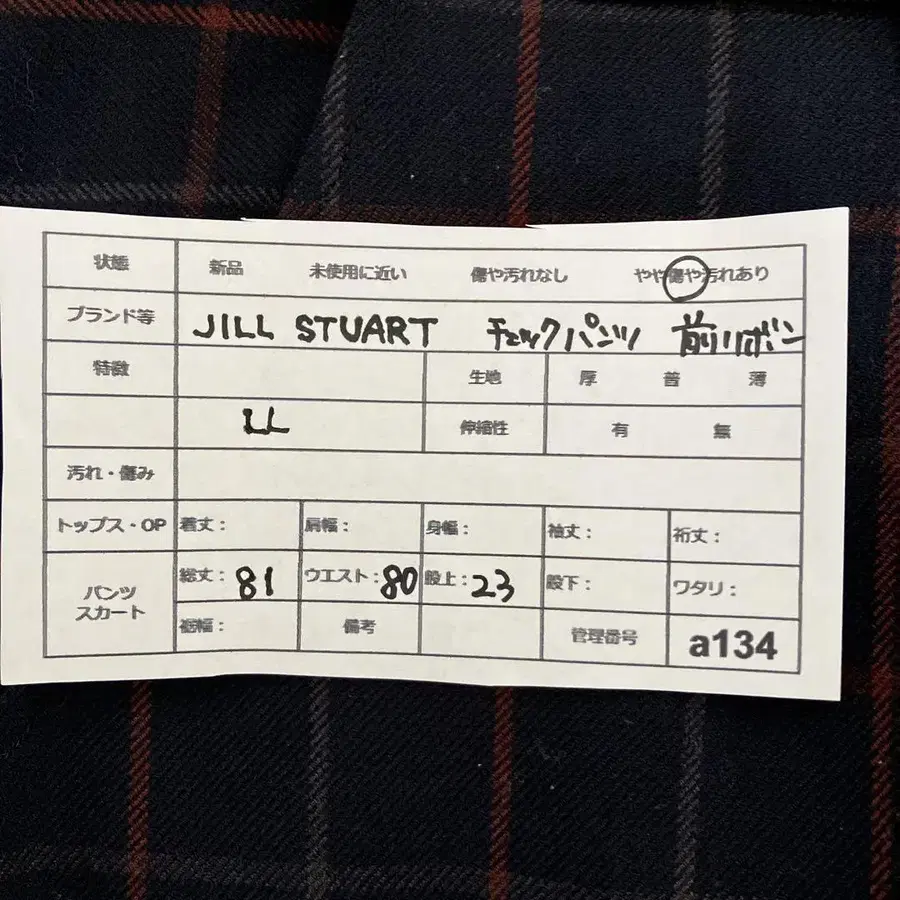 状態 新品 未使用に近い 傷や汚れなし やや傷や汚れあり
ブランド等 JILL STUART チェックパンツ 前リボン
特徴 生地 厚 普 薄
LL 伸縮性 有 無
汚れ・傷み
トップス・OP 着丈： 肩幅： 身幅： 袖丈： 裄丈：
パンツ スカート 総丈：81 ウエスト：80 股上：23 股下： ワタリ：
裾幅： 備考 管理番号 a134